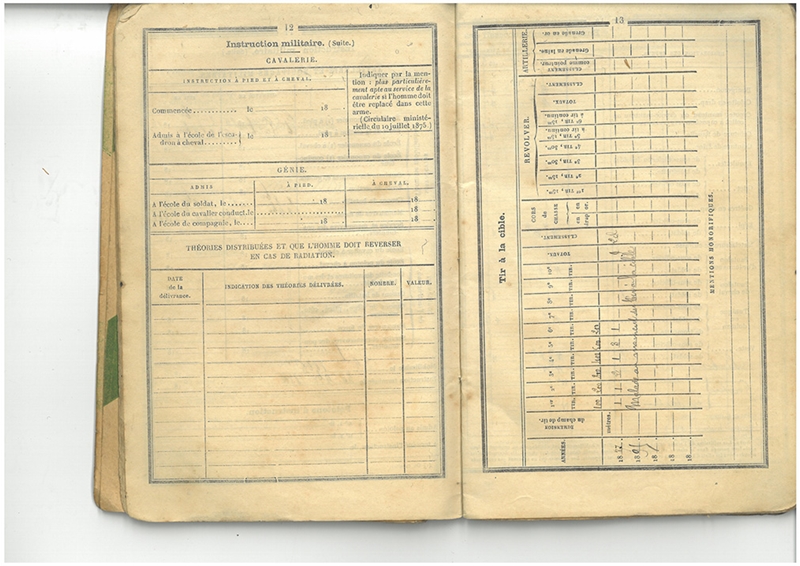 12
Instruction militaire. (Suite.)
CAVALERIE.
INSTRUCTION À PIED ET À CHEVAL.
Commencée........... le 18
Admis à l'école de l'esca- le 18
dron à cheval........
Indiquer par la men-
tion : plus particulière-
ment apte au service de la
cavalerie si l'homme doit
être replacé dans cette
arme.
(Circulaire ministé-
rielle du 10 juillet 1875.)
GÉNIE.
ADMIS À PIED. À CHEVAL.
A l'école du soldat, le....... 18 18
A l'école du cavalier conduct. le 18
A l'école de compagnie, le.... 18 18
THÉORIES DISTRIBUÉES ET QUE L'HOMME DOIT REVERSER
EN CAS DE RADIATION.
DATE
de la
délivrance.
INDICATION DES THÉORIES DÉLIVRÉES.
NOMBRE.
VALEUR.
13
Tir à la cible.
ANNÉES.
DIMENSION
du champ de tir.
1er TIR.
2e TIR.
3e TIR.
4e TIR.
5e TIR.
6e TIR.
7e TIR.
8e TIR.
9e TIR.
10e TIR.
TOTAUX.
CLASSEMENT.
CORS
de
CHASSE
en
drap
or.
REVOLVER.
1er TIR, 15m.
2e TIR, 15m.
3e TIR, 30m.
4e TIR, 30m.
5e TIR, 15m,
à tir continu.
6e TIR, 15m,
à tir continu.
TOTAUX.
CLASSEMENT.
ARTILLERIE.
CLASSEMENT
comme pointeur.
Grenade en laine.
Grenade en or.
mètres.
18
18
18
18
18
MENTIONS HONORIFIQUES.